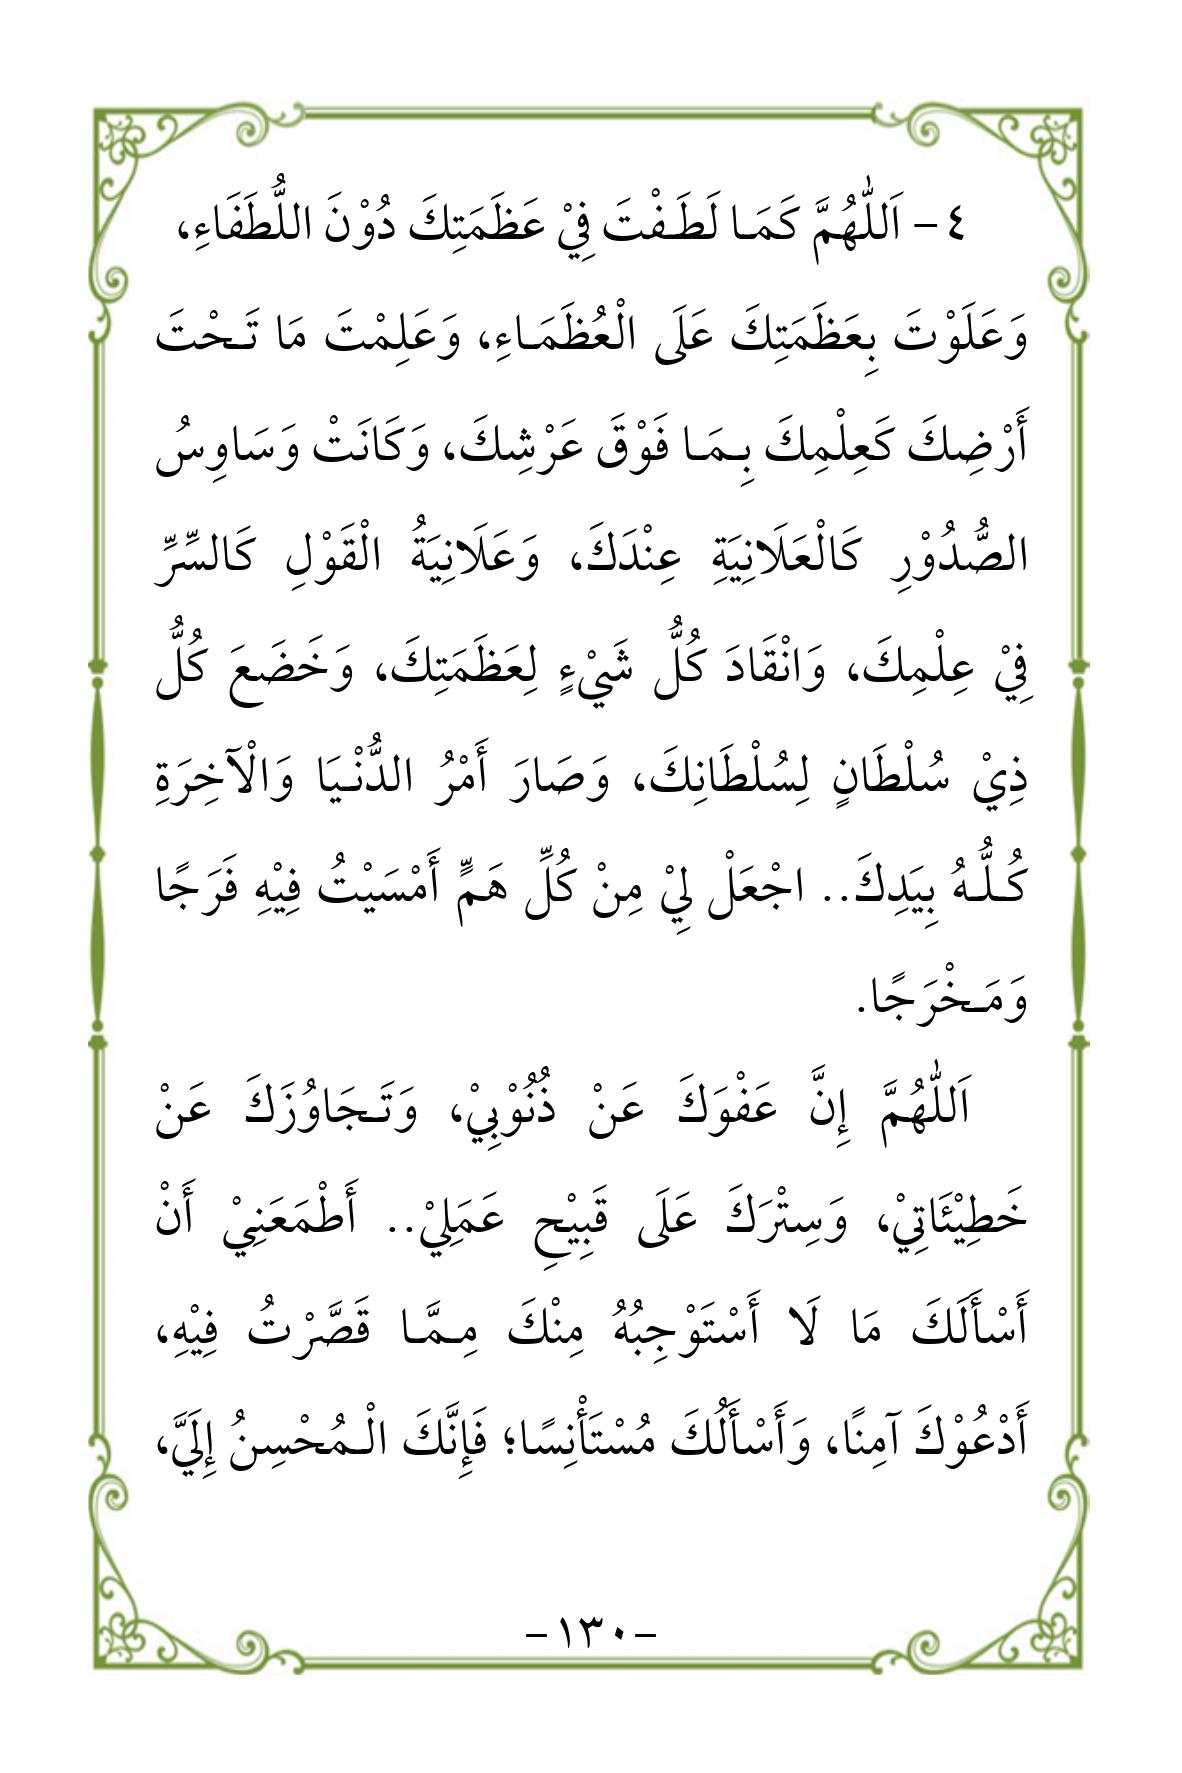 ٤- اَللّٰهُمَّ كَمَا لَطَفْتَ فِيْ عَظَمَتِكَ دُوْنَ اللُّطَفَاءِ،
وَعَلَوْتَ بِعَظَمَتِكَ عَلَى الْعُظَمَاءِ، وَعَلِمْتَ مَا تَحْتَ
أَرْضِكَ كَعِلْمِكَ بِمَا فَوْقَ عَرْشِكَ، وَكَانَتْ وَسَاوِسُ
الصُّدُوْرِ كَالْعَلَانِيَةِ عِنْدَكَ، وَعَلَانِيَةُ الْقَوْلِ كَالسِّرِّ
فِيْ عِلْمِكَ، وَانْقَادَ كُلُّ شَيْءٍ لِعَظَمَتِكَ، وَخَضَعَ كُلُّ
ذِيْ سُلْطَانٍ لِسُلْطَانِكَ، وَصَارَ أَمْرُ الدُّنْيَا وَالْآخِرَةِ
كُلُّهُ بِيَدِكَ.. اجْعَلْ لِيْ مِنْ كُلِّ هَمٍّ أَمْسَيْتُ فِيْهِ فَرَجًا
وَمَخْرَجًا.
اَللّٰهُمَّ إِنَّ عَفْوَكَ عَنْ ذُنُوْبِيْ، وَتَجَاوُزَكَ عَنْ
خَطِيْئَاتِيْ، وَسِتْرَكَ عَلَى قَبِيْحِ عَمَلِيْ.. أَطْمَعَنِيْ أَنْ
أَسْأَلَكَ مَا لَا أَسْتَوْجِبُهُ مِنْكَ مِمَّا قَصَّرْتُ فِيْهِ،
أَدْعُوْكَ آمِنًا، وَأَسْأَلُكَ مُسْتَأْنِسًا؛ فَإِنَّكَ الْمُحْسِنُ إِلَيَّ،
-١٣٠-